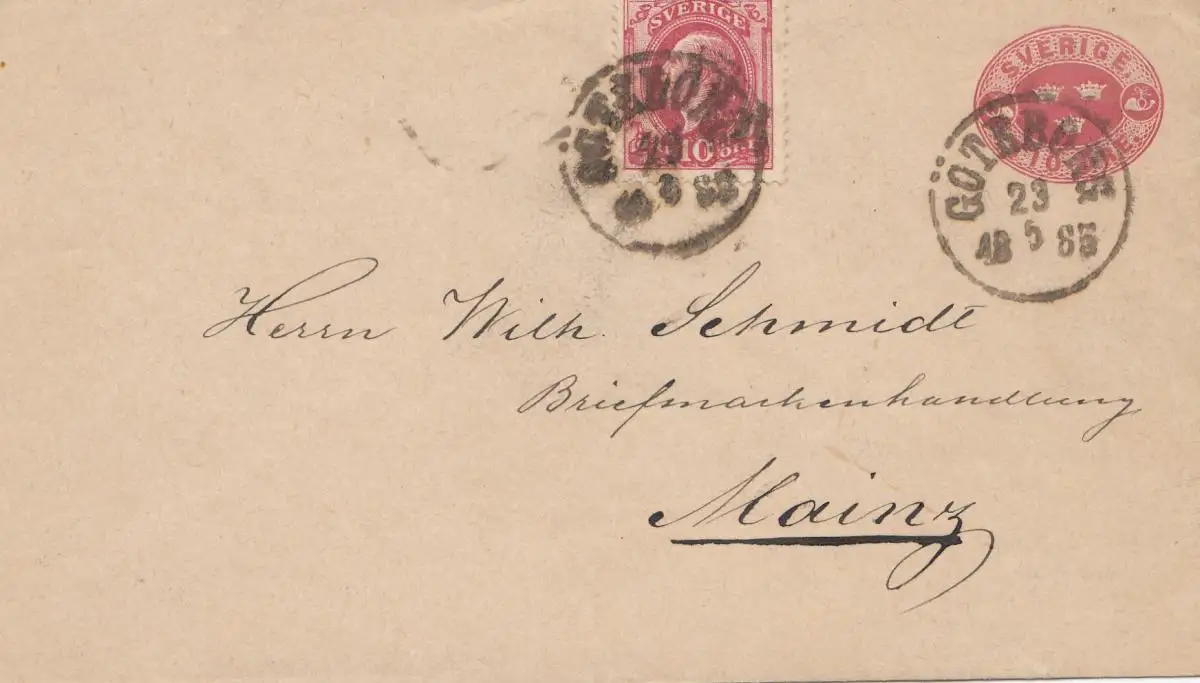 SVERIGE
10 ÖRE
GÖTEBORG
23
SVERIGE.
GÖTEBORG
23
18 5 85
Herrn Wilh. Schmidt
Briefmarkenhandlung
Mainz